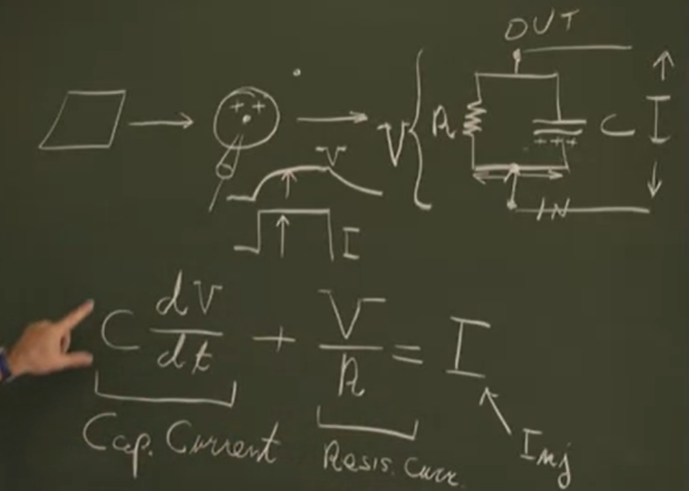 OUT
+ +
V
R
C
I
+++
V
IN
I
C dV/dt + V/R = I
Cap. Current
Resis. Curr.
Inj